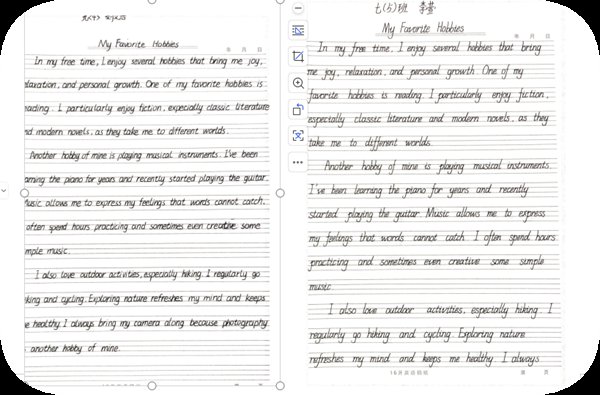 My Favorite Hobbies
年 月 日
In my free time, I enjoy several hobbies that bring me joy,
laxation, and personal growth. One of my favorite hobbies is
eading. I particularly enjoy fiction, expecially classic literature
nd modern novels, as they take me to different worlds.
Another hobby of mine is playing musical instruments. I've been
arning the piano for years and recently started playing the guitar.
Music allows me to express my feelings that words cannot catch.
often spend hours practicing and sometimes even creative some
mple music.
I also love outdoor activities, especially hiking. I regularly go
iking and cycling. Exploring nature refreshes my mind and keeps
e healthy. I always bring my camera along because photography
another hobby of mine.
七(5)班
My Favorite Hobbies
年 月 日
In my free time, I enjoy several hobbies that bring
me joy, relaxation, and personal growth. One of my
favorite hobbies is reading. I particularly enjoy fiction,
especially classic literature and modern novels, as they
take me to different worlds.
Another hobby of mine is playing musical instruments.
I've been learning the piano for years and recently
started playing the guitar. Music allows me to express
my feelings that words cannot catch. I often spend hours
practicing and sometimes even creative some simple
music.
I also love outdoor activities, especially hiking. I
regularly go hiking and cycling. Exploring nature
refreshes my mind and keeps me healthy. I always